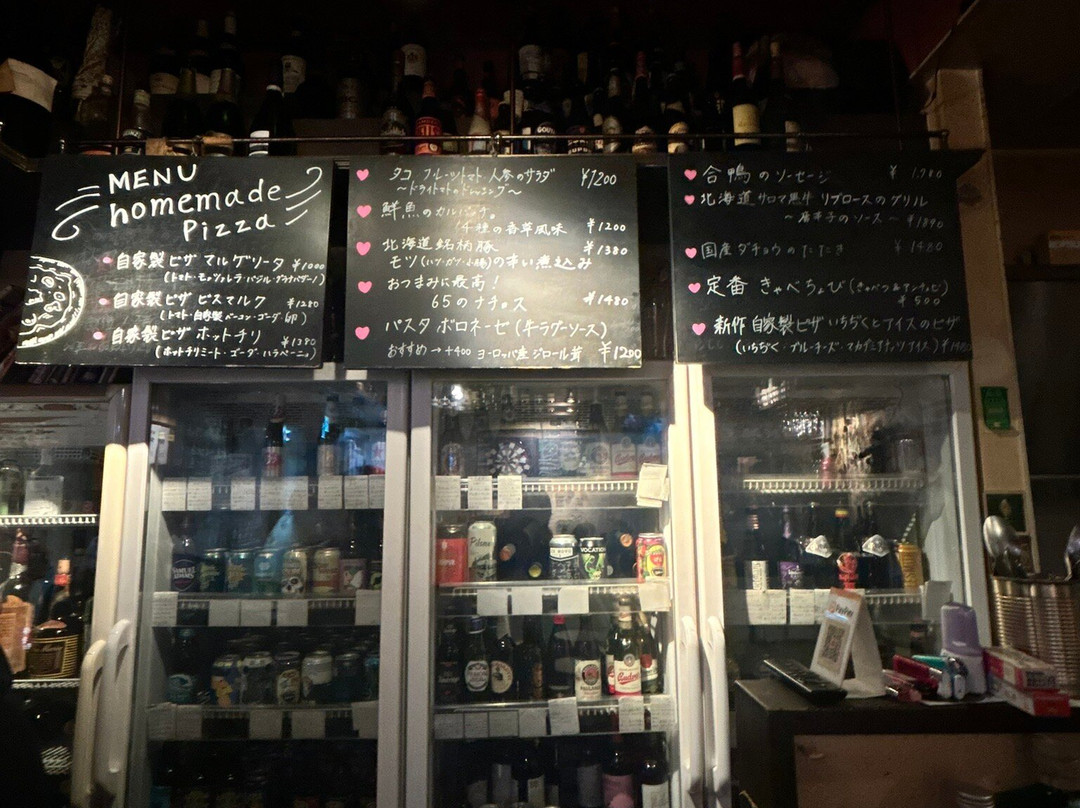 MENU
homemade
Pizza
自家製ピザ マルゲリータ ¥1000
(トマト・モッツァレラ・バジル・グラナパダーノ)
自家製ピザ ビスマルク ¥1280
(トマト・自家製ベーコン・ゴーダ・卵)
自家製ピザ ホットチリ ¥1380
(ホットチリミート・ゴーダ・ハラペーニョ)
タコ フルーツトマト 人参のサラダ ¥1200
〜ドライトマトのドレッシング〜
鮮魚のカルパッチョ
4種の香草風味 ¥1200
北海道銘柄豚 ¥1380
モツ(ハツ・ガツ・小腸)の辛い煮込み
おつまみに最高!
65のナチョス ¥1480
パスタ ボロネーゼ (牛ラグーソース)
おすすめ→+400 ヨーロッパ産ジロール茸 ¥1200
合鴨のソーセージ ¥1,980
北海道サロマ黒牛 リブロースのグリル
〜唐辛子のソース〜 ¥1890
国産ダチョウのたたき ¥1480
定番 きゃべちょび (きゃべつ&アンチョビ)
¥500
新作 自家製ピザ いちぢくとアイスのピザ
(いちぢく・ブルーチーズ・マカダミアナッツアイス)
SAMUEL ADAMS
Pilsner
VOCATION